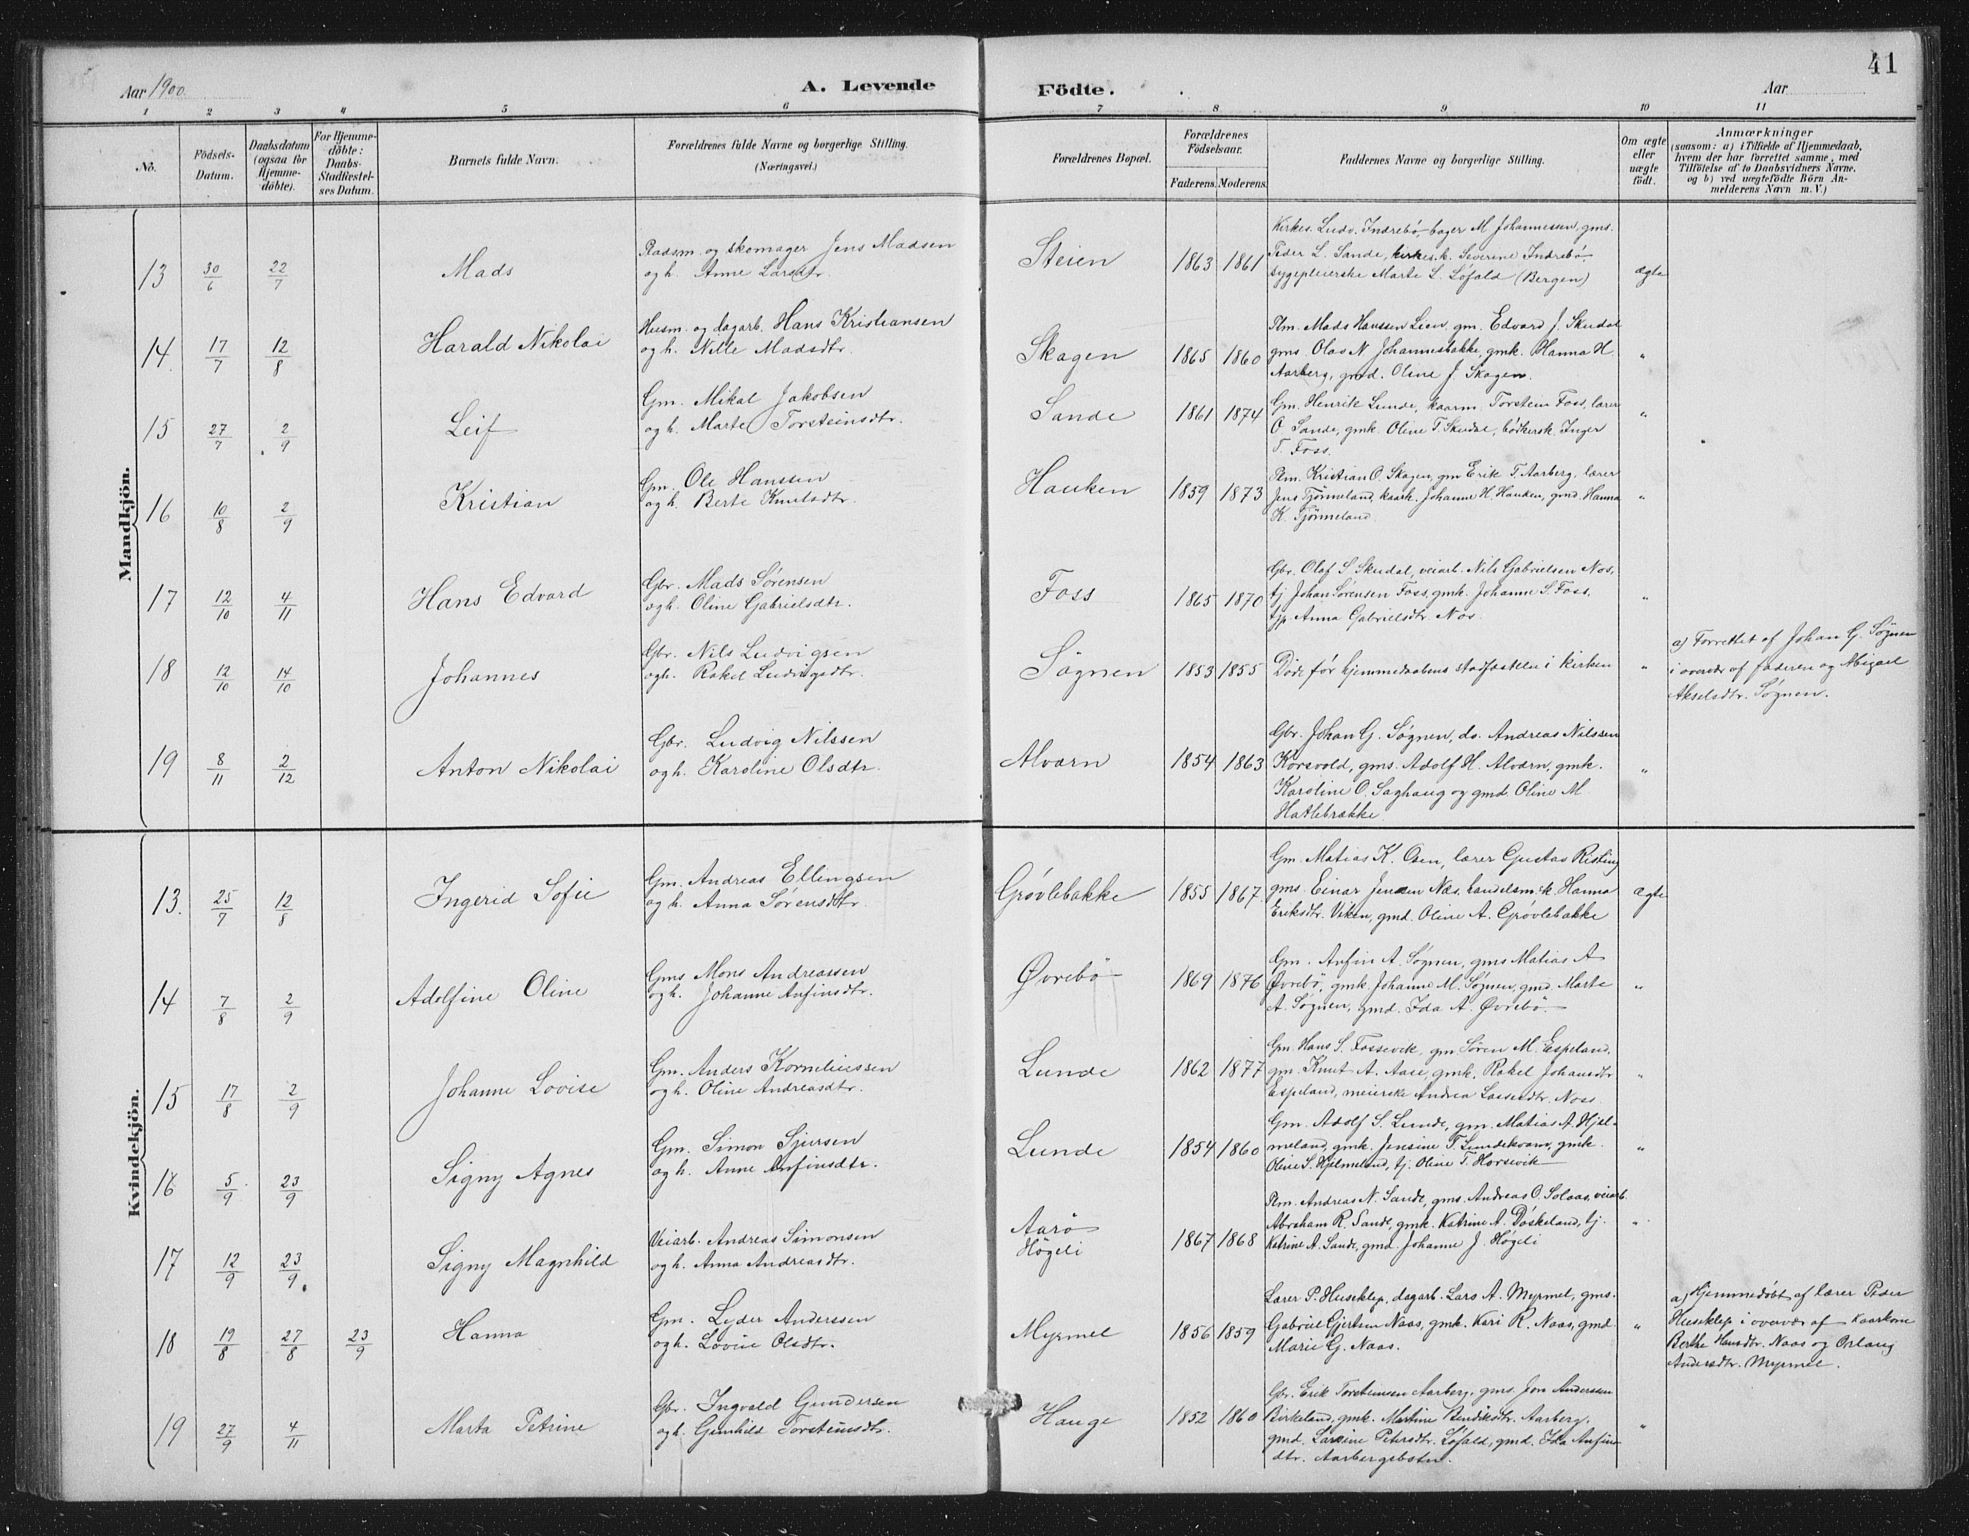 41
Aar 1900.
A. Levende Födte.
Aar
1 2 3 4 5 6 7 8 9 10 11
No.
Födsels-Datum.
Daabsdatum (ogsaa for Hjemme-döbte).
For Hjemme-döbte: Daabs-Stadfæstel-ses Datum.
Barnets fulde Navn.
Forældrenes fulde Navne og borgerlige Stilling. (Næringsvei.)
Forældrenes Bopæl.
Forældrenes Födselsaar.
Faderens. Moderens.
Faddernes Navne og borgerlige Stilling.
Om ægte eller uægte födt.
Anmærkninger
(saasom: a) i Tilfælde af Hjemmedaab,
hvem der har forrettet samme, med
Tilföielse af to Daabsvidners Navne.
og b) ved uægtefödte Börn An-
melderens Navn m. V.)
Mandkjön.
13 30/6 22/7 Mads
Pladsm. og skomager Jens Madsen
og h. Anne Larsdtr.
Steien 1863 1861
Kirkes. Ludv. Indrebø, bager M Johannessen, gms.
Peder L. Sande, kirkes.k. Severine Indrebø
sygepleierske Marte L. Løfald (Bergen)
ægte
14. 17/7 12/8 Harald Nikolai
Husm. og dagarb. Hans Kristiansen
og h. Nille Madsdtr.
Skagen 1865 1860
Plm. Mads Hanssen Lien, gm. Edvard J. Skudal
gms. Olav N. Johannesbakke, gmk. Hanna H.
Aarberg, gmd. Oline J. Skagen.
"
15 27/7 2/9 Leif
Gm. Mikal Jakobsen
og h. Marte Torsteinsdtr.
Sande 1861 1874
Gm. Henrik Lunde, kaarm. Torstein Foss, lærer
O. Sande, gmk. Oline T. Skudal, bødkersk. Inger
T. Foss.
"
16 10/8 2/9 Kristian
Gm. Ole Hanssen
og h. Berte Knutsdtr.
Hauken 1859 1873
Plm. Kristian O. Skagen, gm Erik T. Aarberg, lærer
Jens Tjønneland, kaark. Johanne H. Hauken, gmd. Hanna
K. Tjønneland.
"
17 12/10 4/11 Hans Edvard
Gbr. Mads Sørensen
og h. Oline Gabrielsdtr.
Foss 1865 1870
Gbr. Olaf S Skudal, veiarb. Nils Gabrielsen Nos,
tj. Johan Sørensen Foss, gmk. Johanne S. Foss,
tjp. Anna Gabrielsdtr. Nos.
"
18 12/10 14/10 Johannes
Gbr. Nils Ludvigsen
og h. Rakel Ludvigsdtr.
Søgnen 1853 1855
Døde før hjemmedaabens stadfæstelse i kirken
"
a) Forrettet af Johan G. Søgnen
i overvær af faderen og Abigael
Akselsdtr. Søgnen.
19 8/11 2/12 Anton Nikolai
Gbr. Ludvig Nilssen
og h. Karoline Olsdtr.
Alværn 1854 1863
Gbr. Johan G. Søgnen, ds. Andreas Nilssen
Korsvold, gms. Adolf H. Alværn, gmk.
Karoline O. Saghaug og gmd. Oline M.
Hatlebrække
"
Kvindekjön.
13. 25/7 12/8 Ingerid Sofie
Gm. Andreas Ellingsen
og h. Anna Sørensdtr.
Grøvlebakke 1855 1867.
Gm. Matias K. Osen, lærer Gustav Risting
gms. Einar Jensen Næs, handelsm.k. Hanna
Eriksdtr. Viken, gmd. Oline A. Grøvlebakke
ægte
14 7/8 2/9 Adolfine Oline
Gms. Mons Andreassen
og h. Johanne Anfinsdtr.
Øvrebö 1869 1876
Gm. Anfin A. Søgnen, gms Matias A
Øvrebö, gmk. Johanne M. Søgnen, gmd. Marte
A. Søgnen, gmd. Ida A. Øvrebö.
"
15 17/8 2/9 Johanne Lovise
Gm. Anders Korneliussen
og h. Oline Andreasdtr.
Lunde 1862 1877
Gm. Hans S. Fossevik, gm Søren M. Espeland,
gm. Knut A. Aase, gmk. Rakel Johansdtr
Espeland, meierske Andrea Lassesdtr. Noss.
"
16 5/9 23/9 Signy Agnes
Gm. Simon Sjursen
og h. Anne Anfinsdtr.
Lunde 1854 1860
Gm. Adolf S. Lunde, gm. Matias A. Hjel-
meland, gmk. Jensine T. Lundekvam, gmk.
Oline S. Hjelmeland, tj. Oline T. Horsevik
"
17 12/9 23/9 Signy Magnhild
Veiarb. Andreas Simonsen
og h. Anna Andreasdtr.
Aarø
Högeli 1867 1868
Plm. Andreas N. Sande, gms. Andreas O. Solaas, veiarb.
Abraham R. Sande, gmk. Katrine A. Døskeland, tj.
Katrine A. Sande, gmd. Johanne J. Högeli
"
18 19/8 27/8 23/9 Hanna
Gm. Lyder Anderssen
og h. Lovise Olsdtr.
Myrmel 1856 1859
Lærer P. Huseklep, dagarb. Lars A. Myrmel, gms.
Gabriel Gjertsen Naas, gmk. Kari R. Naas, gmd.
Marie G. Naas.
"
a) Hjemmedøbt af lærer Peder
Huseklep i overvær af kaarkone
Berthe Hansdtr. Naas og Erlang
Andersdtr. Myrmel.
19 27/9 4/11 Marta Petrine
Gbr. Ingvald Gundersen
og h. Gunhild Torsteinsdtr.
Hauge 1852 1860
Gbr. Erik Torsteinsen Aarberg, gms. Jon Anderssen
Birkeland, gmk. Martine Bendiksdtr. Aarberg.
gmd. Larsine Petersdtr. Løfald, gmd. Ida Anfins-
dtr. Aarbergsbotn.
"